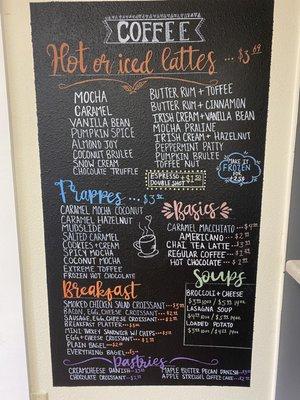 COFFEE
Hot or iced lattes ... $3.69
MOCHA
CARAMEL
VANILLA BEAN
PUMPKIN SPICE
ALMOND JOY
COCONUT BRULEE
SNOW CREAM
CHOCOLATE TRUFFLE
BUTTER RUM + TOFFEE
BUTTER RUM + CINNAMON
IRISH CREAM + VANILLA BEAN
MOCHA PRALINE
IRISH CREAM + HAZELNUT
PEPPERMINT PATTY
PUMPKIN BRULEE
TOFFEE NUT
ESPRESSO
DOUBLE SHOT
MAKE IT
FROZEN
FOR
Frappes
CARAMEL MOCHA COCONUT
CARAMEL HAZELNUT
MUDSLIDE
SALTED CARAMEL
COOKIES + CREAM
SPICY MOCHA
COCONUT MOCHA
EXTREME TOFFEE
FROZEN HOT CHOCOLATE
Basics
CARAMEL MACCHIATO
AMERICANO
CHAI TEA LATTE
REGULAR COFFEE
HOT CHOCOLATE
Breakfast
SMOKED CHICKEN SALAD CROISSANT
BACON, EGG, CHEESE CROISSANT
SAUSAGE, EGG, CHEESE CROISSANT
BREAKFAST PLATTER
MINI TURKEY SANDWICH W/ CHIPS
EGG + CHEESE CROISSANT
PLAIN BAGEL
EVERYTHING BAGEL
Soups
BROCCOLI + CHEESE
LASAGNA SOUP
LOADED POTATO
Pastries
CREAMCHEESE DANISH
CHOCOLATE CROISSANT
MAPLE BUTTER PECAN DANISH
APPLE STREUSEL COFFEE CAKE